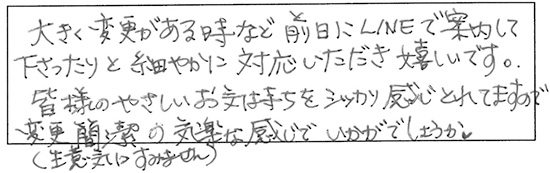 大きく変更がある時など前日にLINEで案内して
下さったりと細やかに対応いただき嬉しいです。
皆様のやさしいお気持ちをシッカリ感じとれてますので
変更簡潔の気楽な感じでいかがでしょうか。
(生意気いいすみません)